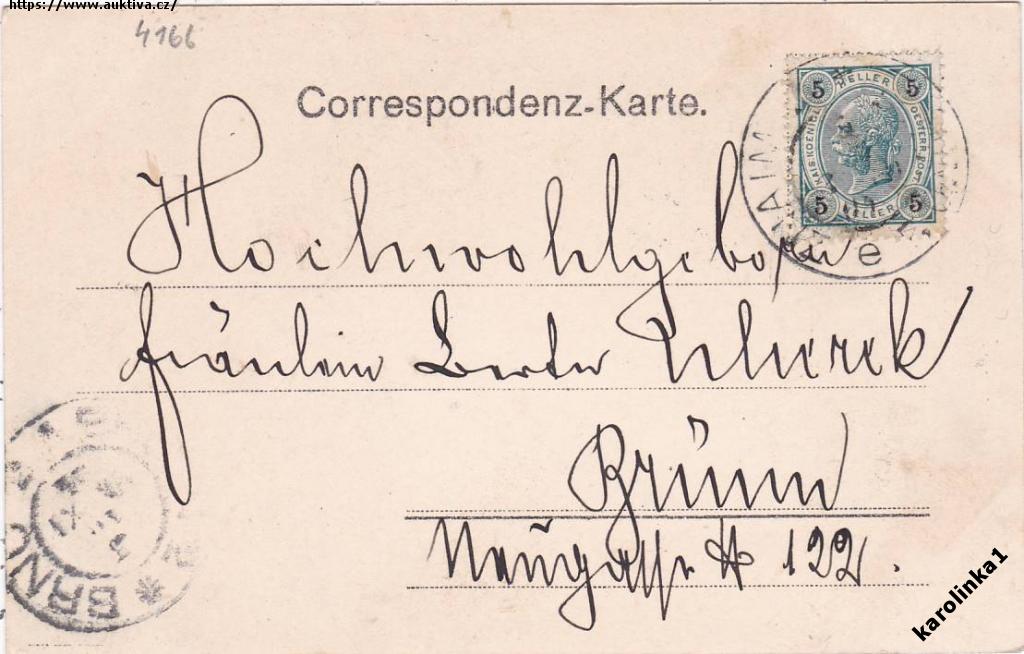 https://www.auktiva.cz/
4166
Correspondenz-Karte.
5 HELLER 5
KAIS. KOENIGL. OESTERR. POST.
5 HELLER 5
NAIM
e
Hochwohlgeboren
Fräulein Berta
Brünn
Neugasse # 122.
BRNO
karolinka1